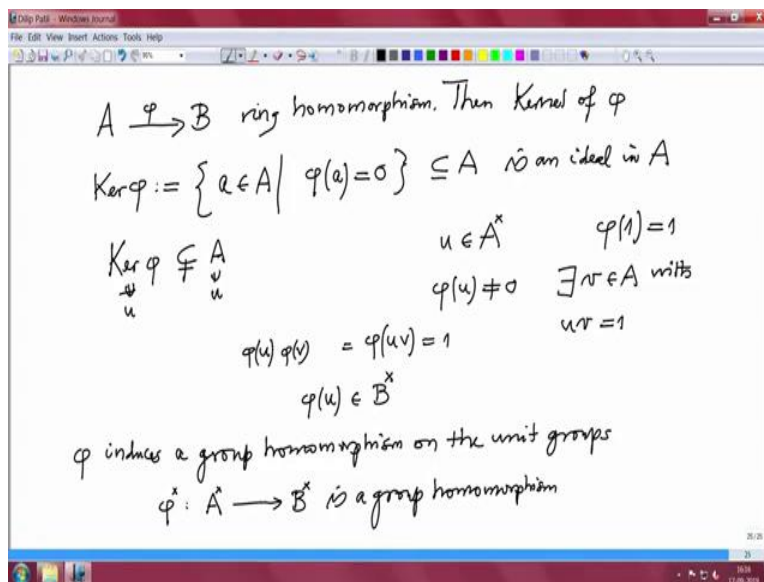 Dilip Patil - Windows Journal
File Edit View Insert Actions Tools Help
A →φ B ring homomorphism. Then Kernel of φ
Ker φ := { a ∈ A | φ(a) = 0 } ⊆ A is an ideal in A
u ∈ A^× φ(1) = 1
Ker φ ⊊ A
φ(u) ≠ 0 ∃ v ∈ A with
u u
uv = 1
φ(u) φ(v) = φ(uv) = 1
φ(u) ∈ B^×
φ induces a group homomorphism on the unit groups
φ^× : A^× → B^× is a group homomorphism
25/25
25